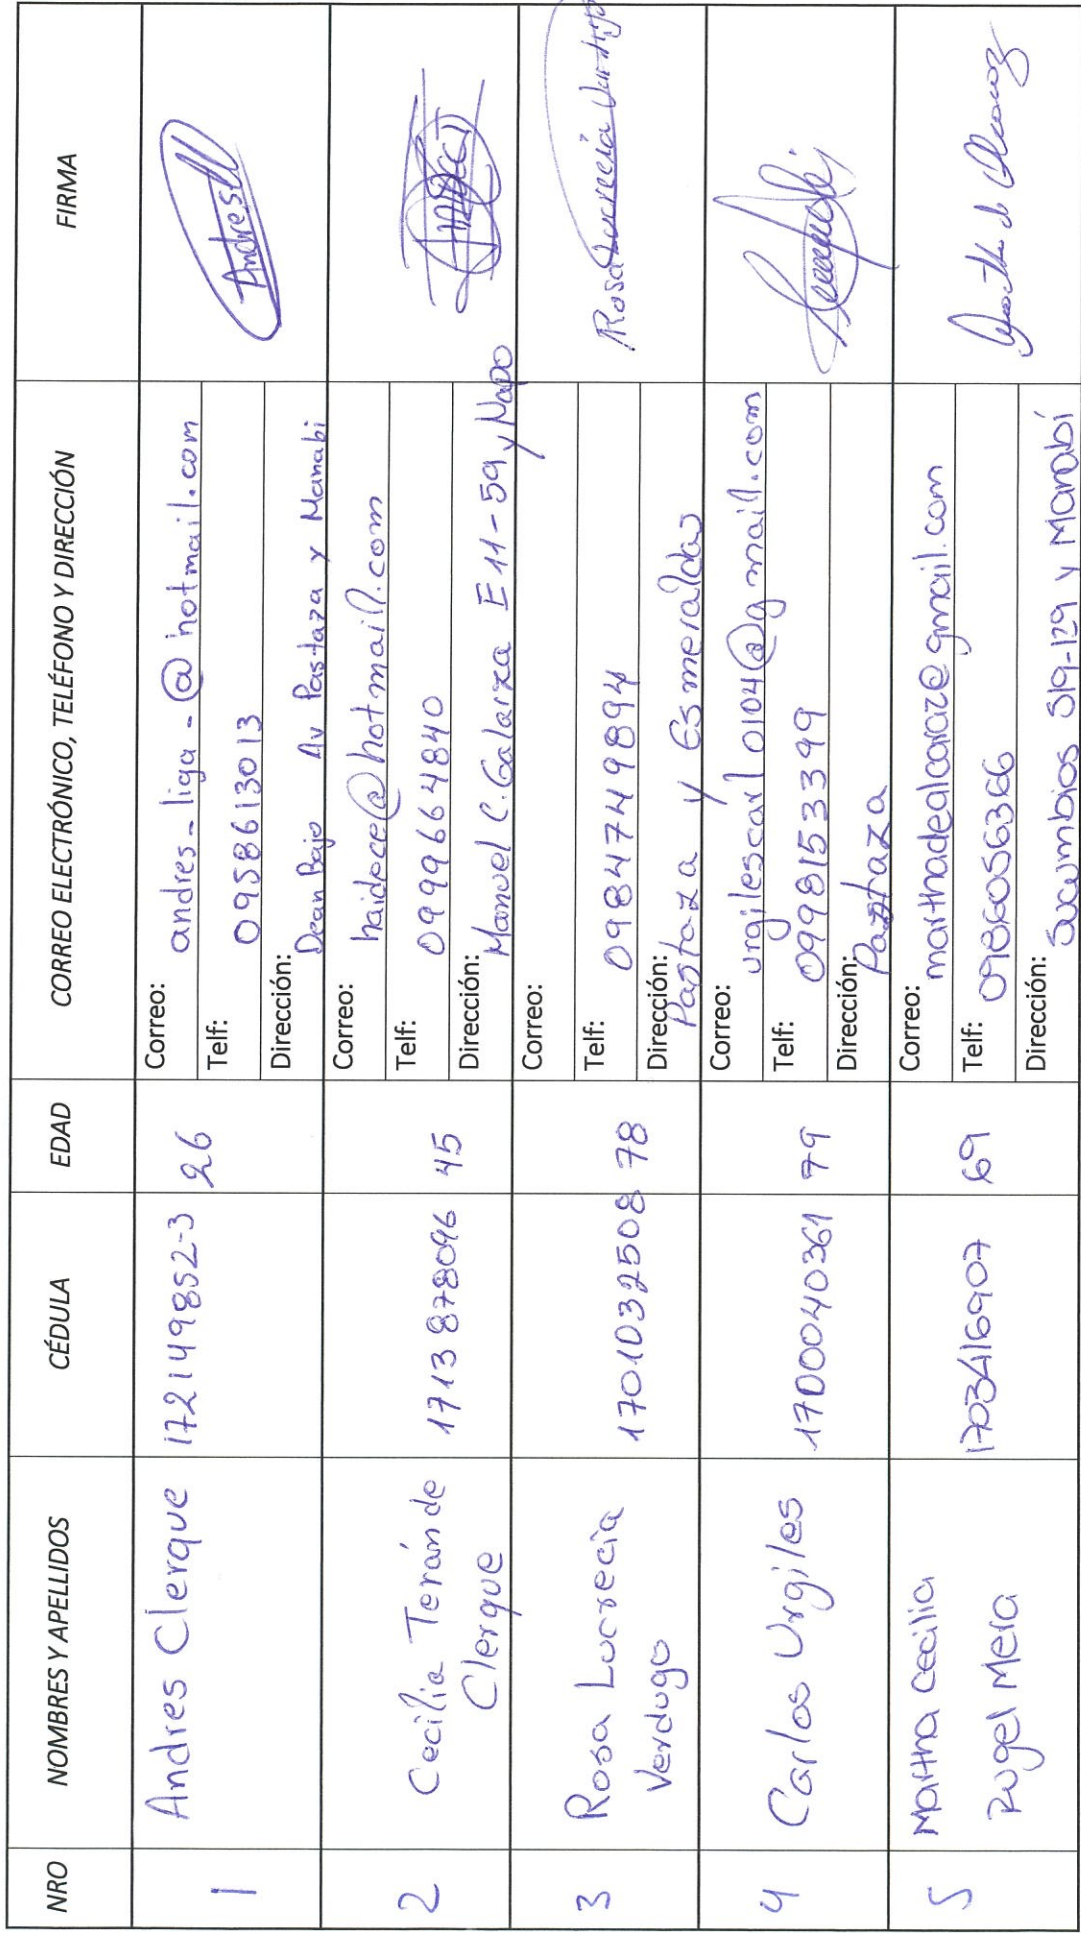 NRO NOMBRES Y APELLIDOS CÉDULA EDAD CORREO ELECTRÓNICO, TELÉFONO Y DIRECCIÓN FIRMA
1 Andres Clerque 172149852-3 26
Correo: andres_liga_@hotmail.com
Telf: 0958613013
Dirección: Dean Bajo Av Pastaza y Manabi
Andres
2 Cecilia Terán de
Clerque
1713878096 45
Correo: haidece@hotmail.com
Telf: 0999664840
Dirección: Manuel C. Galarza E11-59 y Napo
3 Rosa Lucrecia
Verdugo
1701032508 78
Correo:
Telf: 0984749894
Dirección: Pastaza y Esmeraldas
Rosa Lucrecia
4 Carlos Urgiles 1700040361 79
Correo: urgilescarl0104@gmail.com
Telf: 0998153399
Dirección: Pastaza
5 Martha Cecilia
Rugel Mera
1703416907 69
Correo: marthadealcaraz@gmail.com
Telf: 0986056366
Dirección: Sucumbios S19-129 y Manabí
Martha d Alcaraz